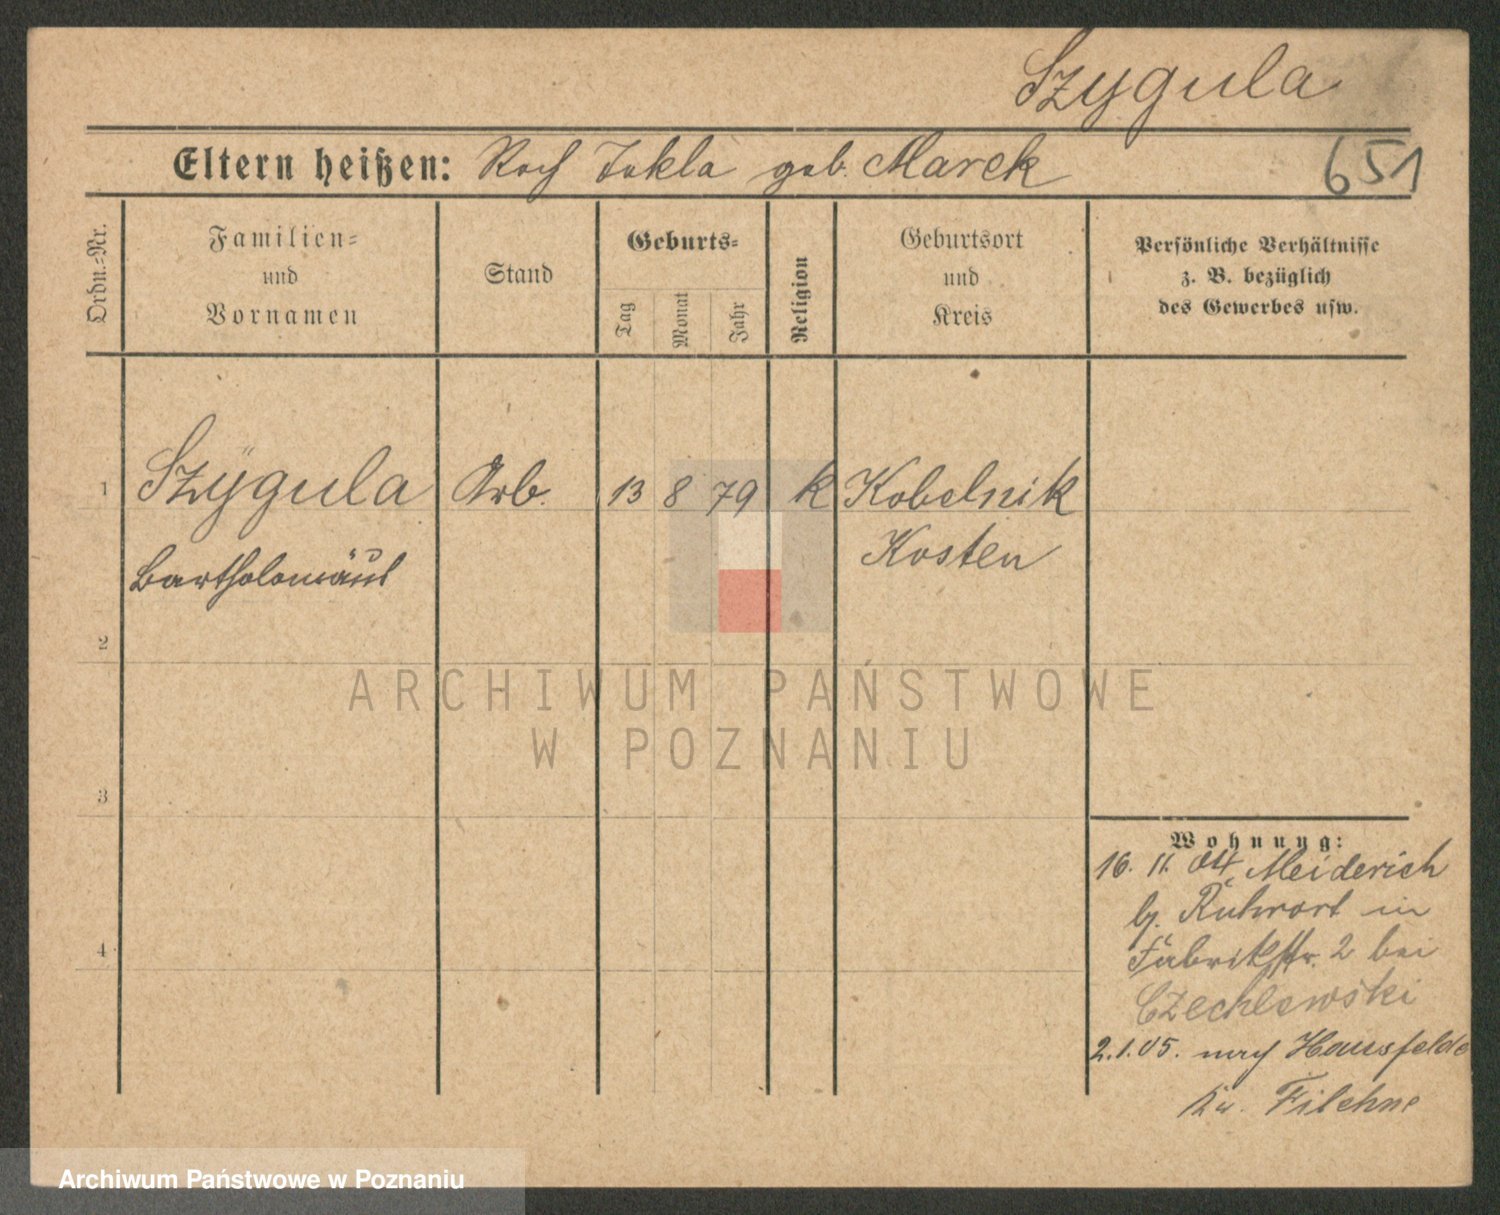 Szygula
Eltern heißen: Roch Tekla geb. Marek
651
Ordn.-Nr.
Familien-
und
Vornamen
Stand
Geburts-
Tag
Monat
Jahr
Religion
Geburtsort
und
Kreis
Persönliche Verhältnisse
z. B. bezüglich
des Gewerbes usw.
1 Szygula Arb. 13 8 79 k Kobelnik
Kosten
Bartholomäus
2
3
4
Wohnung:
16. 11. 04 Meiderich
bj. Ruhrort in
Fabrikstr. 2 bei
Czechlewski
2.1.05. nach Hausfelde
Kr. Filehne
ARCHIWUM PAŃSTWOWE
W POZNANIU
Archiwum Państwowe w Poznaniu